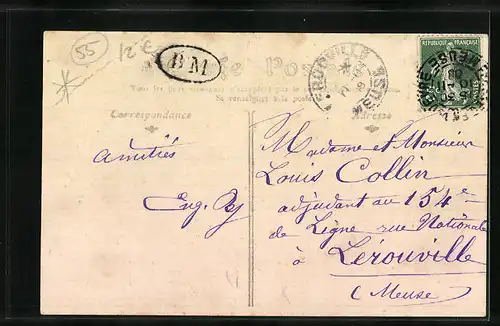 55
12 €
BM
LEROUVILLE
MEUSE
REPUBLIQUE FRANÇAISE
Tous les pays étrangers n'acceptent pas la
Se renseigner à la poste
Correspondance
Adresse
amitiés
Eug.
Madame et Monsieur
Louis Collin
adjudant au 154e
de Ligne rue Nationale
à Lérouville
(Meuse)